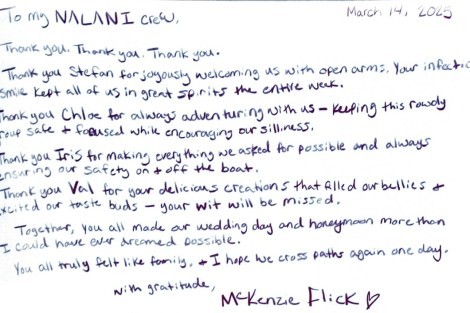 To my NALANI crew,
March 14, 2025
Thank you. Thank you. Thank you.
Thank you Stefan for joyously welcoming us with open arms. Your infectic
smile kept all of us in great spirits the entire week.
Thank you Chloe for always adventuring with us – keeping this rowdy
roup safe + focused while encouraging our silliness.
Thank you Iris for making everything we asked for possible and always
ensuring our safety on + off the boat.
Thank you Val for your delicious creations that filled our bellies +
excited our taste buds – your wit will be missed.
Together, you all made our wedding day and honeymoon more than
I could have ever dreamed possible.
You all truly felt like family, + I hope we cross paths again one day.
with gratitude,
McKenzie Flick ♡